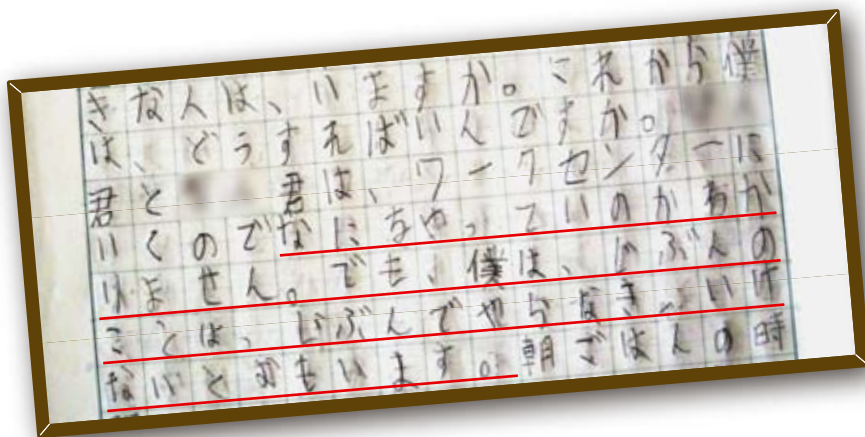 きな人は、いますか。これから僕
は、どうすればいんですか。
君と 君は、ワークセンターに
いくのでなにおやっていのかわか
りません。でも、僕は、じぶんの
ことは、じぶんでやらなきゃいけ
ないとおもいます。朝ごはんの時